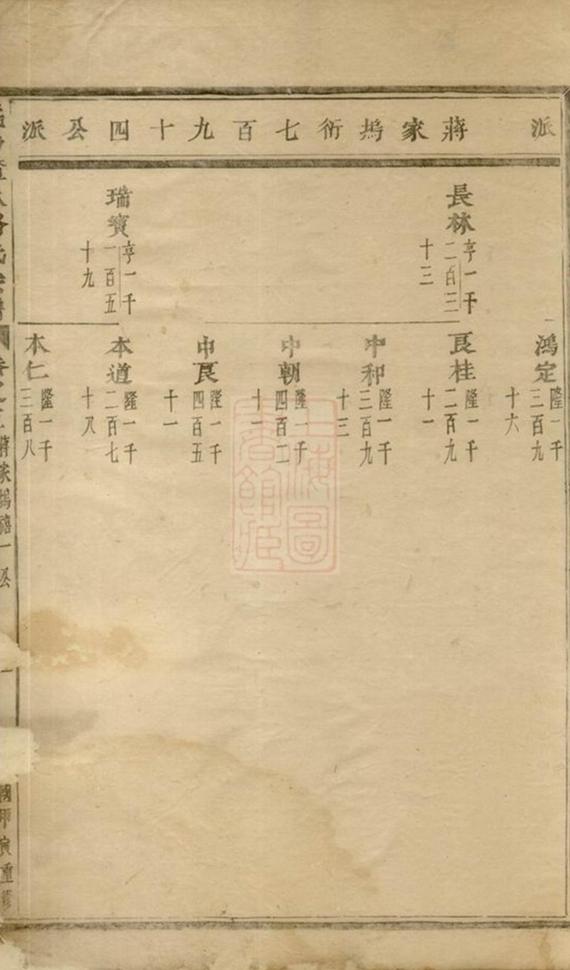 派
蔣家塢衍七百九十四公派
長林
亨一千
二百三
十三
瑞寳
亨一千
一百五
十九
鴻定
隆一千
三百九
十六
良桂
隆一千
二百九
十一
中和
隆一千
三百九
十三
中朝
隆一千
四百二
中良
隆一千
四百五
十一
本道
隆一千
二百七
十八
本仁
隆一千
三百八
蔣家塢
一公
重修
上海圖書館藏